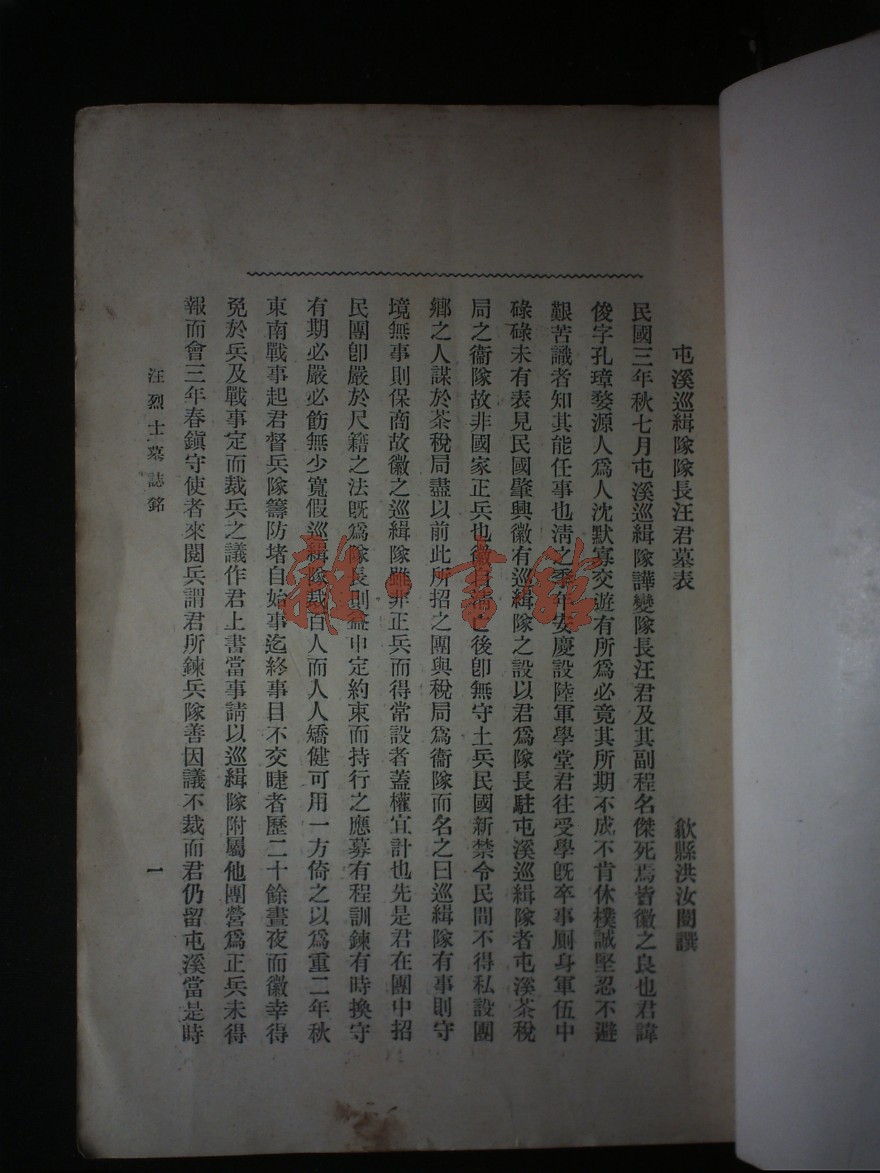 屯溪巡緝隊隊長汪君墓表
歙縣洪汝闓譔
民國三年秋七月屯溪巡緝隊譁變隊長汪君及其副程名傑死焉皆徽之良也君諱
俊字孔璋婺源人爲人沈默寡交遊有所爲必竟其所期不成不肯休樸誠堅忍不避
艱苦識者知其能任事也淸之季年安慶設陸軍學堂君往受學旣卒事厠身軍伍中
碌碌未有表見民國肇興徽有巡緝隊之設以君爲隊長駐屯溪巡緝隊者屯溪茶稅
局之衞隊故非國家正兵也徽自淸亡後卽無守土兵民國新禁令民間不得私設團
鄕之人謀於茶稅局盡以前此所招之團與稅局爲衞隊而名之曰巡緝隊有事則守
境無事則保商故徽之巡緝隊雖非正兵而得常設者蓋權宜計也先是君在團中招
民團卽嚴於尺籍之法旣爲隊長則益申定約束而持行之應募有程訓鍊有時換守
有期必嚴必飭無少寬假巡緝隊裁百人而人人矯健可用一方倚之以爲重二年秋
東南戰事起君督兵隊籌防堵自始事迄終事目不交睫者歷二十餘晝夜而徽幸得
免於兵及戰事定而裁兵之議作君上書當事請以巡緝隊附屬他團營爲正兵未得
報而會三年春鎭守使者來閱兵謂君所鍊兵隊善因議不裁而君仍留屯溪當是時
汪烈士墓誌銘
一
雜·書館